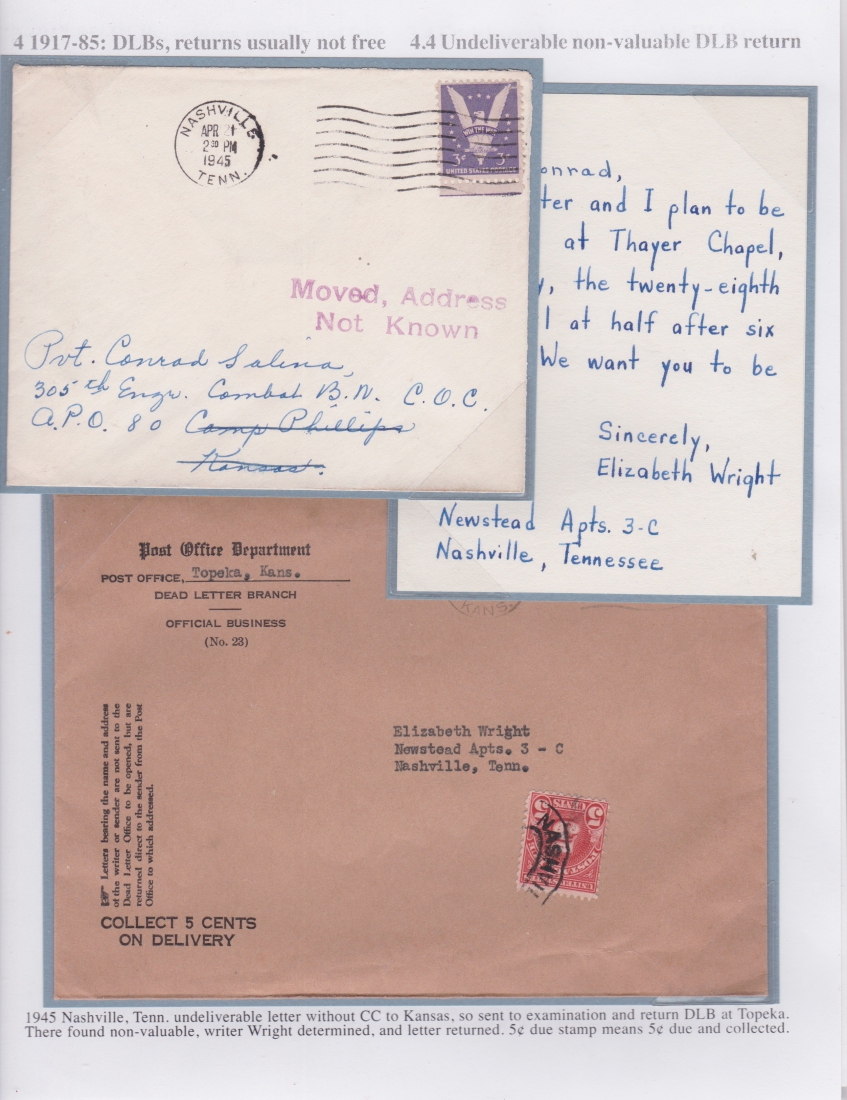 4 1917-85: DLBs, returns usually not free 4.4 Undeliverable non-valuable DLB return
NASHVILLE
APR 21
2 30 PM
1945
TENN.
WIN THE WAR
3¢ 3¢
UNITED STATES POSTAGE
Moved, Address
Not Known
Pvt. Conrad Salina,
305th Engr. Combat B.N. C.O.C.
A.P.O. 80 Camp Phillips
Kansas.
onrad,
ter and I plan to be
at Thayer Chapel,
y, the twenty-eighth
l at half after six
We want you to be
Sincerely,
Elizabeth Wright
Newstead Apts. 3-C
Nashville, Tennessee
Post Office Department
POST OFFICE, Topeka, Kans.
DEAD LETTER BRANCH
OFFICIAL BUSINESS
(No. 23)
KANS
Letters bearing the name and address
of the writer or sender are not sent to the
Dead Letter Office to be opened, but are
returned direct to the sender from the Post
Office to which addressed.
COLLECT 5 CENTS
ON DELIVERY
Elizabeth Wright
Newstead Apts. 3 - C
Nashville, Tenn.
5 CENTS 5
NASHVIL
1945 Nashville, Tenn. undeliverable letter without CC to Kansas, so sent to examination and return DLB at Topeka.
There found non-valuable, writer Wright determined, and letter returned. 5¢ due stamp means 5¢ due and collected.